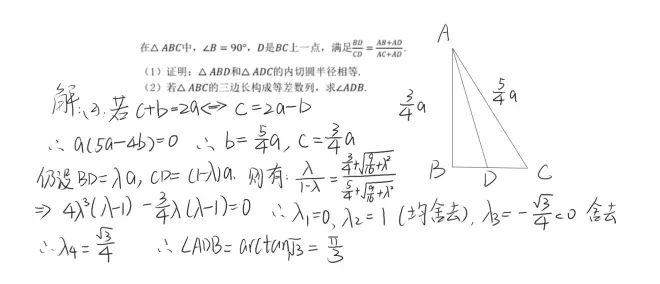 在△ABC中，∠B = 90°，D是BC上一点，满足$\frac{BD}{CD}=\frac{AB+AD}{AC+AD}$.
（1）证明：△ABD和△ADC的内切圆半径相等.
（2）若△ABC的三边长构成等差数列，求∠ADB.
解：(2). 若 c+b=2a ⟺ c=2a-b
∴ a(5a-4b)=0 ∴ b=$\frac{5}{4}$a, c=$\frac{3}{4}$a
仍设 BD=λa, CD=(1-λ)a. 则有: $\frac{λ}{1-λ}=\frac{\frac{3}{4}+\sqrt{\frac{9}{16}+λ^2}}{\frac{5}{4}+\sqrt{\frac{9}{16}+λ^2}}$
⇒ 4λ³(λ-1) - $\frac{3}{4}$λ(λ-1)=0 ∴ λ₁=0, λ₂=1 (均舍去), λ₃=-$\frac{\sqrt{3}}{4}$<0 舍去
∴ λ₄=$\frac{\sqrt{3}}{4}$ ∴ ∠ADB=arctan$\sqrt{3}$=$\frac{π}{3}$
A
$\frac{3}{4}$a $\frac{5}{4}$a
B D C